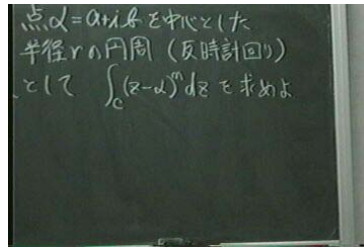 点α=a+ibを中心とした
半径rの円周(反時計回り)
として ∫_C (z-α)^n dz を求めよ